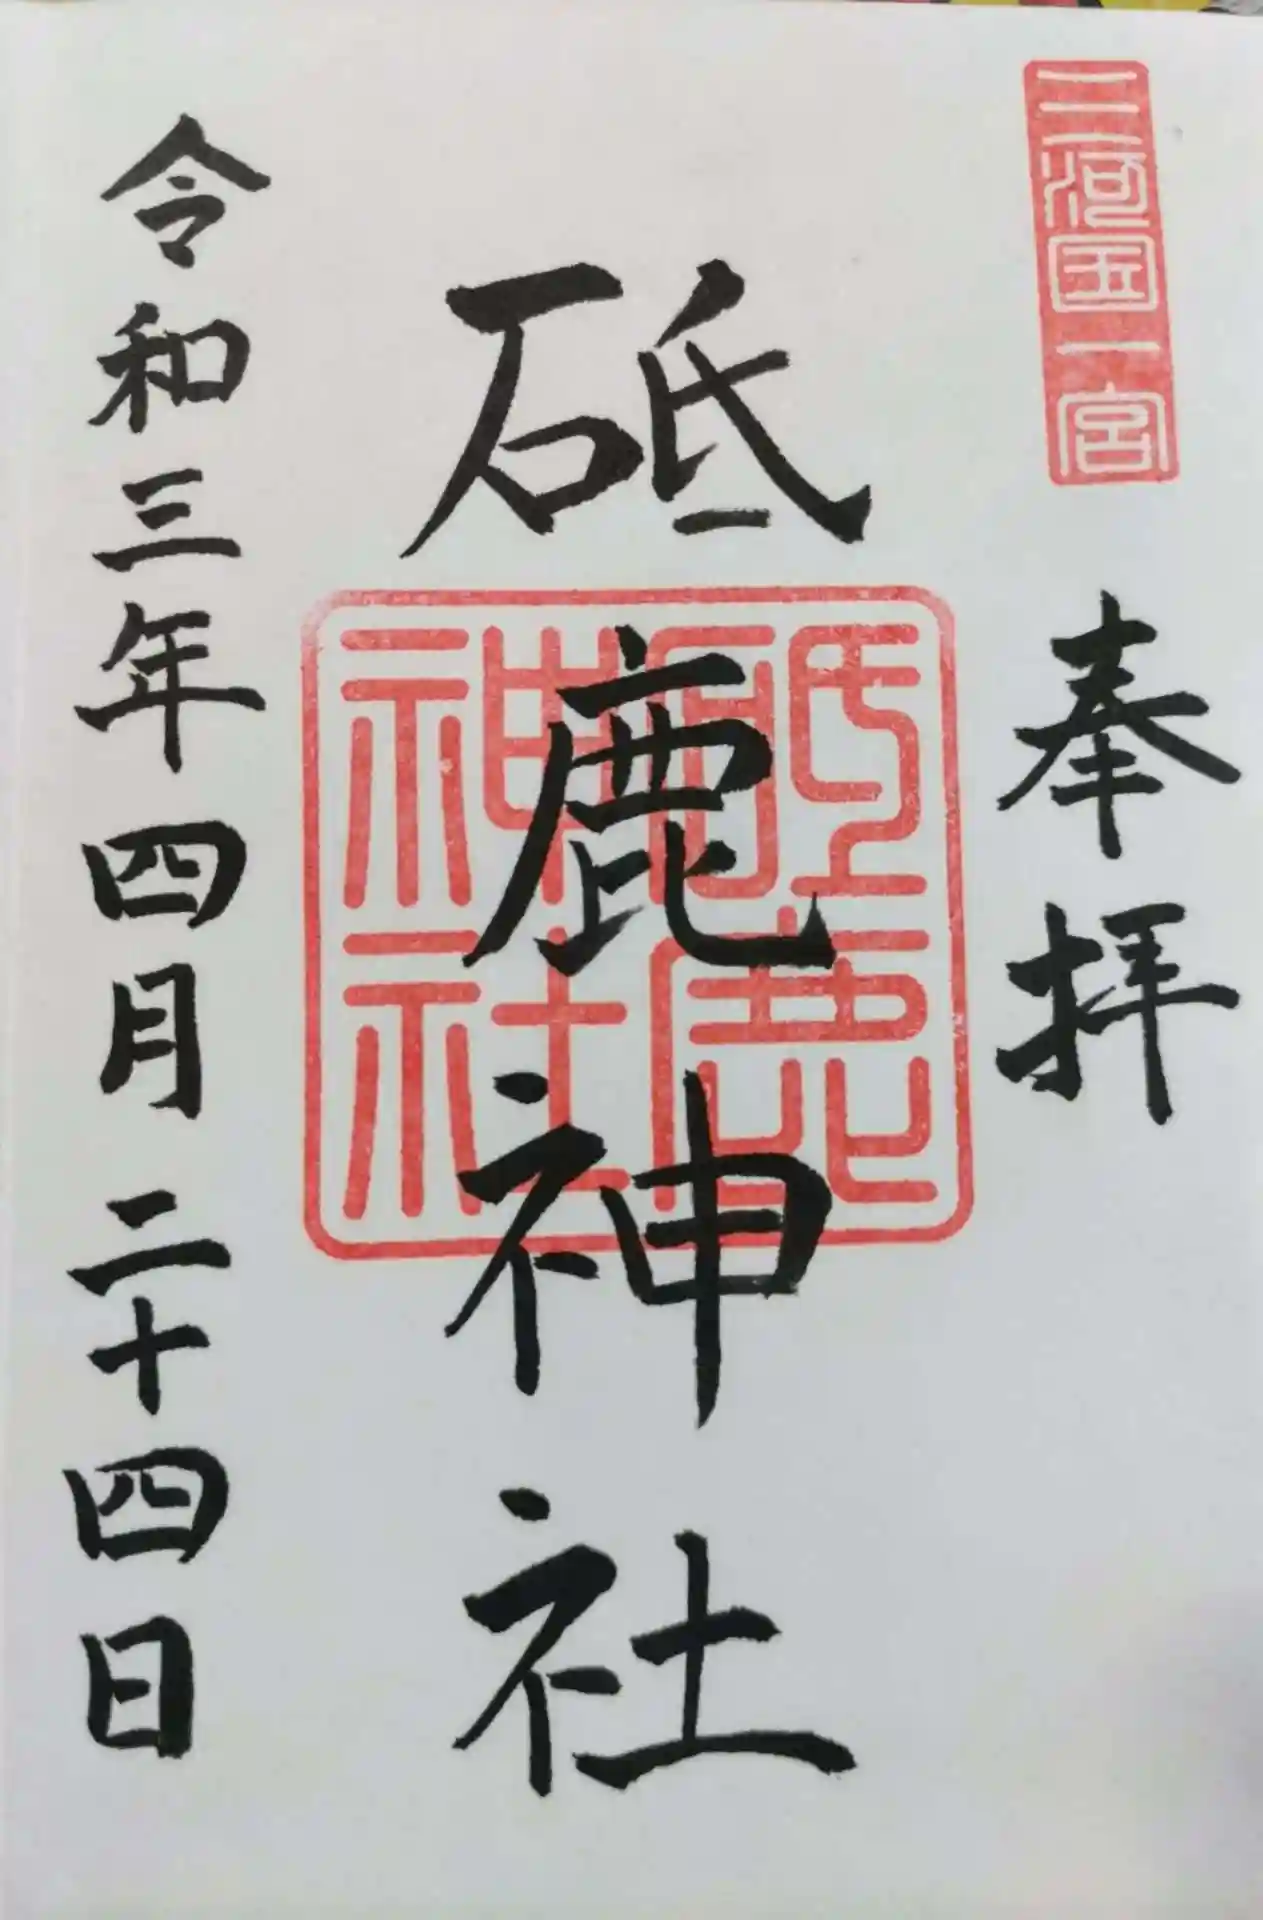 三河国一宮
奉拝
砥鹿神社
砥鹿
神社
令和三年四月二十四日